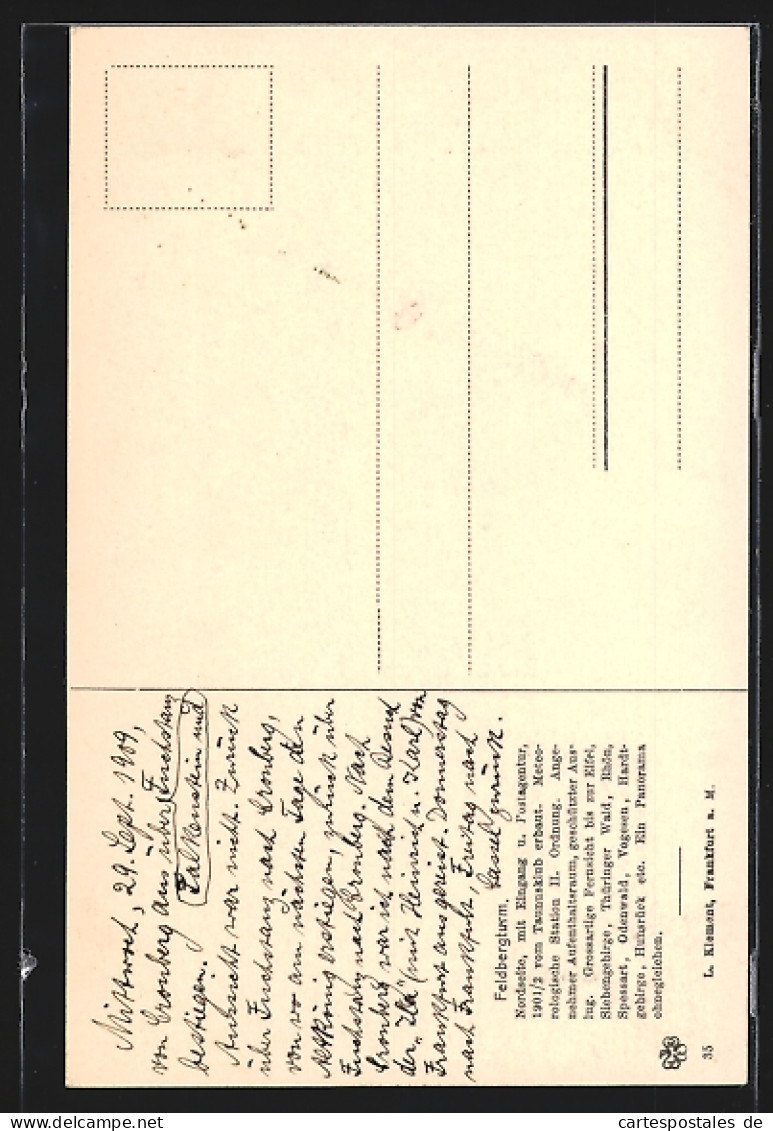 Mittwoch, 29. Sept. 1909,
von Cronberg aus über Fuchstanz
Falkenstein und
bestiegen.
Aussicht war nicht. Zurück
über Fuchstanz nach Cronberg,
von wo am nächsten Tage den
Altkönig erstiegen, zurück über
Fuchstanz nach Cronberg. Nach
Cronberg war ich nach dem Besuch
der „Ila" (mit Heinrich u. Karl) von
Frankfurt aus gereist. Donnerstag
nach Frankfurt, Freitag nach
Cassel zurück.
Feldbergturm.
Nordseite, mit Eingang u. Postagentur,
1901/2 vom Taunusklub erbaut. Meteo-
rologische Station II. Ordnung. Ange-
nehmer Aufenthaltsraum, geschützter Aus-
lug. Grossartige Fernsicht bis zur Eifel,
Siebengebirge, Thüringer Wald, Rhön,
Spessart, Odenwald, Vogesen, Hardt-
gebirge, Hunsrück etc. Ein Panorama
ohnegleichen.
35 L. Klement, Frankfurt a. M.
© cartespostales de